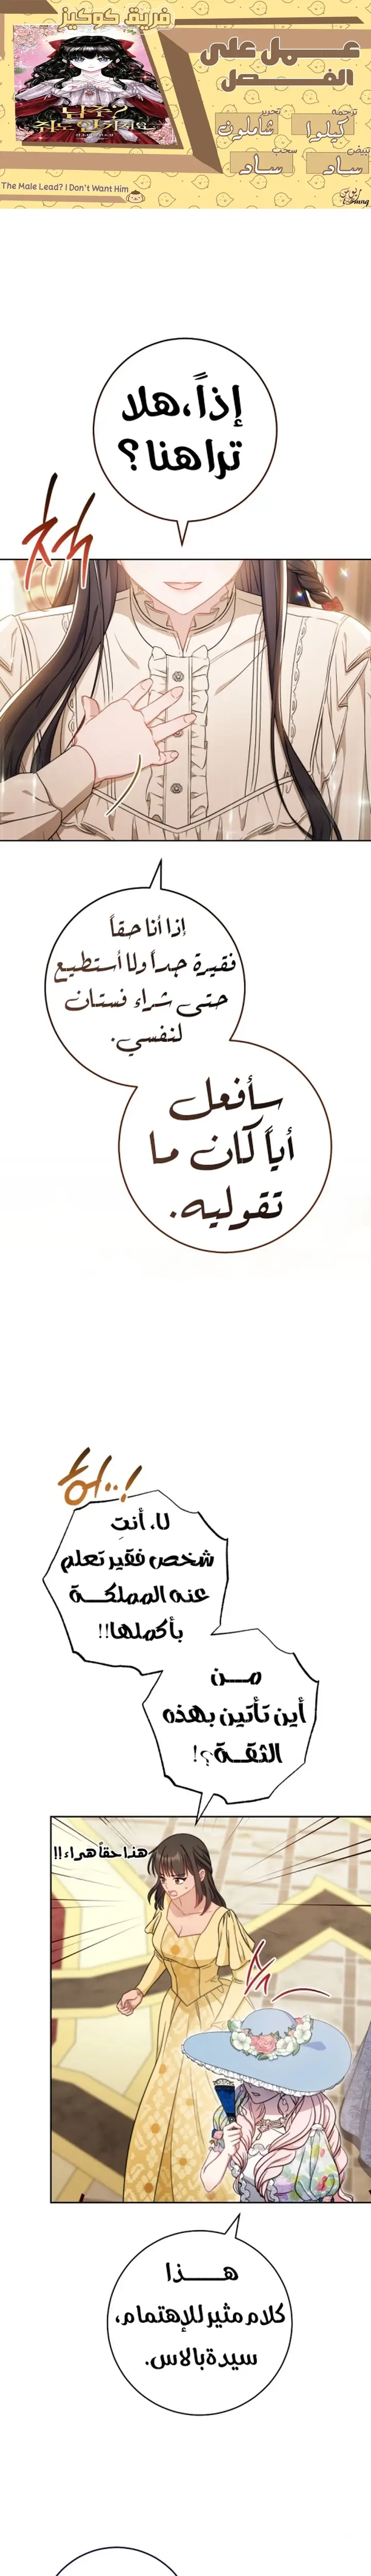 فريق كوكيز
عمل على
الفصل
ترجمة
كيلوا
تحرير
شاملون
تبييض
ساد
سحب
ساد
The Male Lead? I Don't Want Him
إذاً، هلا
تراهنا؟
척
إذا أنا حقاً
فقيرة جداً ولا أستطيع
حتى شراء فستان
لنفسي.
سأفعل
أياً كان ما
تقوليه.
허..!
لا، أنتِ
شخص فقير تعلم
عنه المملكة
بأكملها!!
من
أين تأتين بهذه
الثقة؟!
هذا حقاً هراء!!
هذا
كلام مثير للإهتمام،
سيدة بالاس.